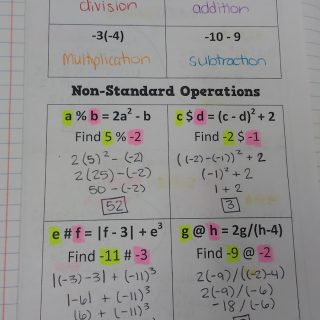 division addition
-3(-4) -10 - 9
Multiplication subtraction
Non-Standard Operations
a % b = 2a² - b
Find 5 % -2
2(5)² - (-2)
2(25) - (-2)
50 - (-2)
52
c $ d = (c - d)² + 2
Find -2 $ -1
((-2) - (-1))² + 2
(-1)² + 2
1 + 2
3
e # f = |f - 3| + e³
Find -11 # -3
|(-3) - 3| + (-11)³
|-6| + (-11)³
(6) + (-11)³
g @ h = 2g/(h-4)
Find -9 @ -2
2(-9)/((-2)-4)
2(-9)/(-6)
-18/(-6)